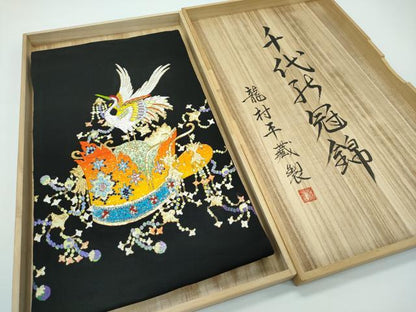 千代能冠錦
龍村平藏製